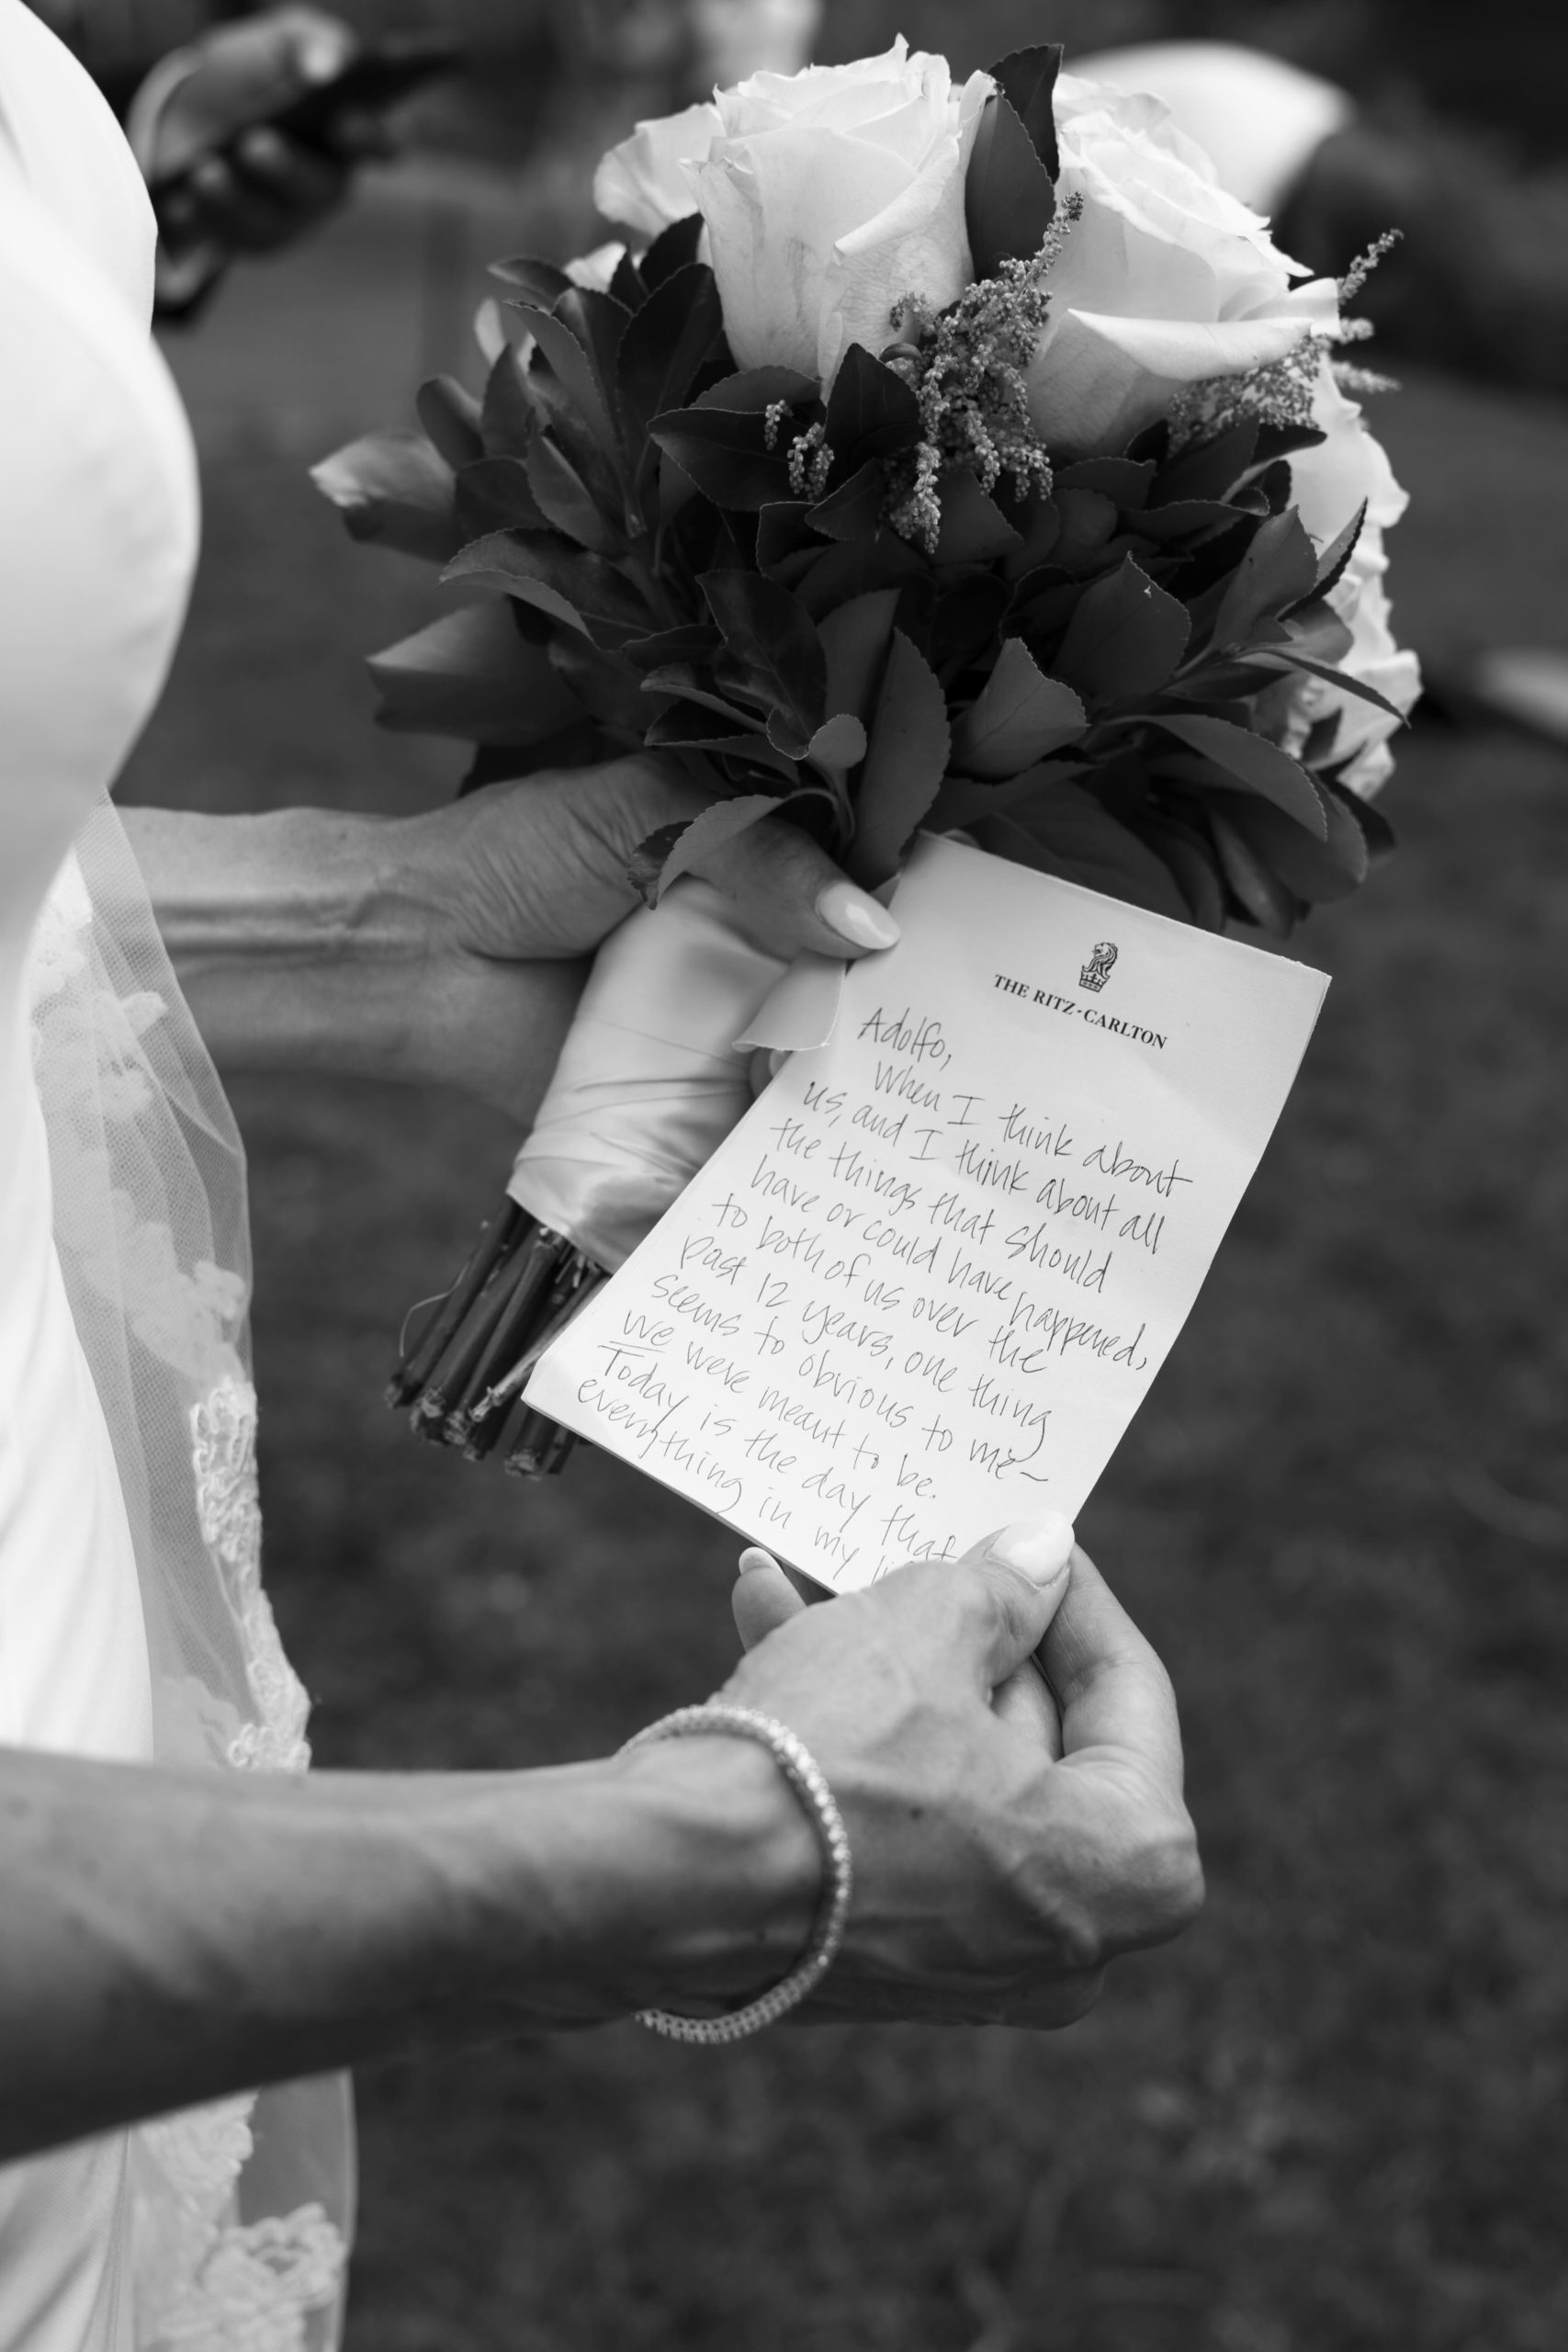 THE RITZ-CARLTON
Adolfo,
When I think about
us, and I think about all
the things that should
have or could have happened,
to both of us over the
past 12 years, one thing
seems to obvious to me—
we were meant to be.
Today is the day that
everything in my